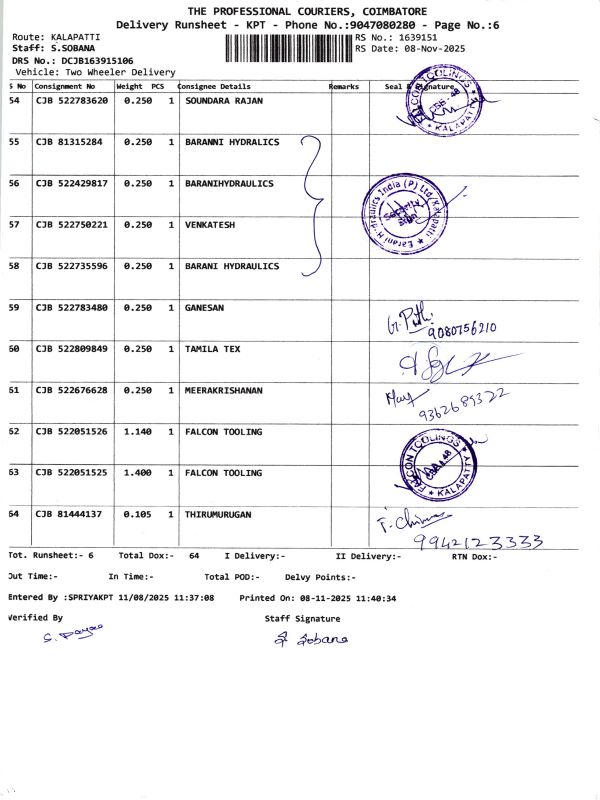 THE PROFESSIONAL COURIERS, COIMBATORE
Delivery Runsheet - KPT - Phone No.:9047080280 - Page No.:6
Route: KALAPATTI RS No.: 1639151
Staff: S.SOBANA RS Date: 08-Nov-2025
DRS No.: DCJB163915106
Vehicle: Two Wheeler Delivery
S No Consignment No Weight PCS Consignee Details Remarks Seal & Signature
54 CJB 522783620 0.250 1 SOUNDARA RAJAN
FALCON TOOLINGS CBE-48 KALAPATTY
55 CJB 81315284 0.250 1 BARANNI HYDRALICS
56 CJB 522429817 0.250 1 BARANIHYDRAULICS
Hydraulics India (P) Ltd Kalapatti Security
57 CJB 522750221 0.250 1 VENKATESH
58 CJB 522735596 0.250 1 BARANI HYDRAULICS
59 CJB 522783480 0.250 1 GANESAN
9080756210
60 CJB 522809849 0.250 1 TAMILA TEX
61 CJB 522676628 0.250 1 MEERAKRISHANAN
9362689322
62 CJB 522051526 1.140 1 FALCON TOOLING
FALCON TOOLINGS KALAPATTY
63 CJB 522051525 1.400 1 FALCON TOOLING
64 CJB 81444137 0.105 1 THIRUMURUGAN
9942123333
Tot. Runsheet:- 6 Total Dox:- 64 I Delivery:- II Delivery:- RTN Dox:-
Out Time:- In Time:- Total POD:- Delvy Points:-
Entered By :SPRIYAKPT 11/08/2025 11:37:08 Printed On: 08-11-2025 11:40:34
Verified By Staff Signature
Sobana